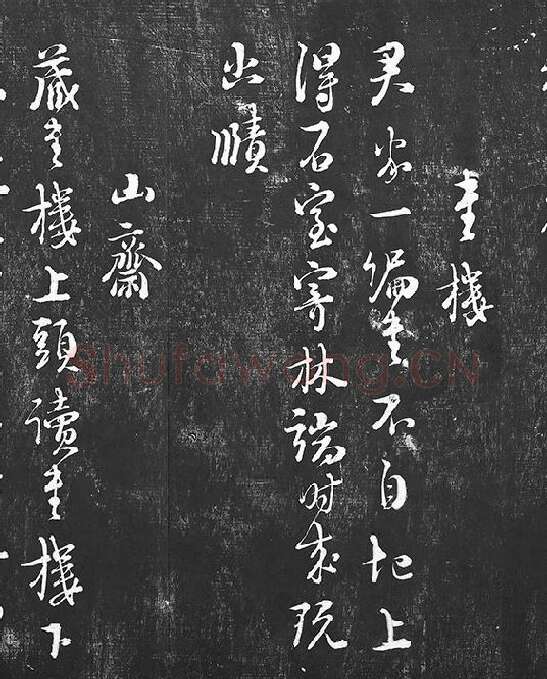 書樓
君家一編書不自圯上
得石室寄林端時來玩
幽賾
山齋
藏書樓上頭讀書樓下
Shufawang.CN